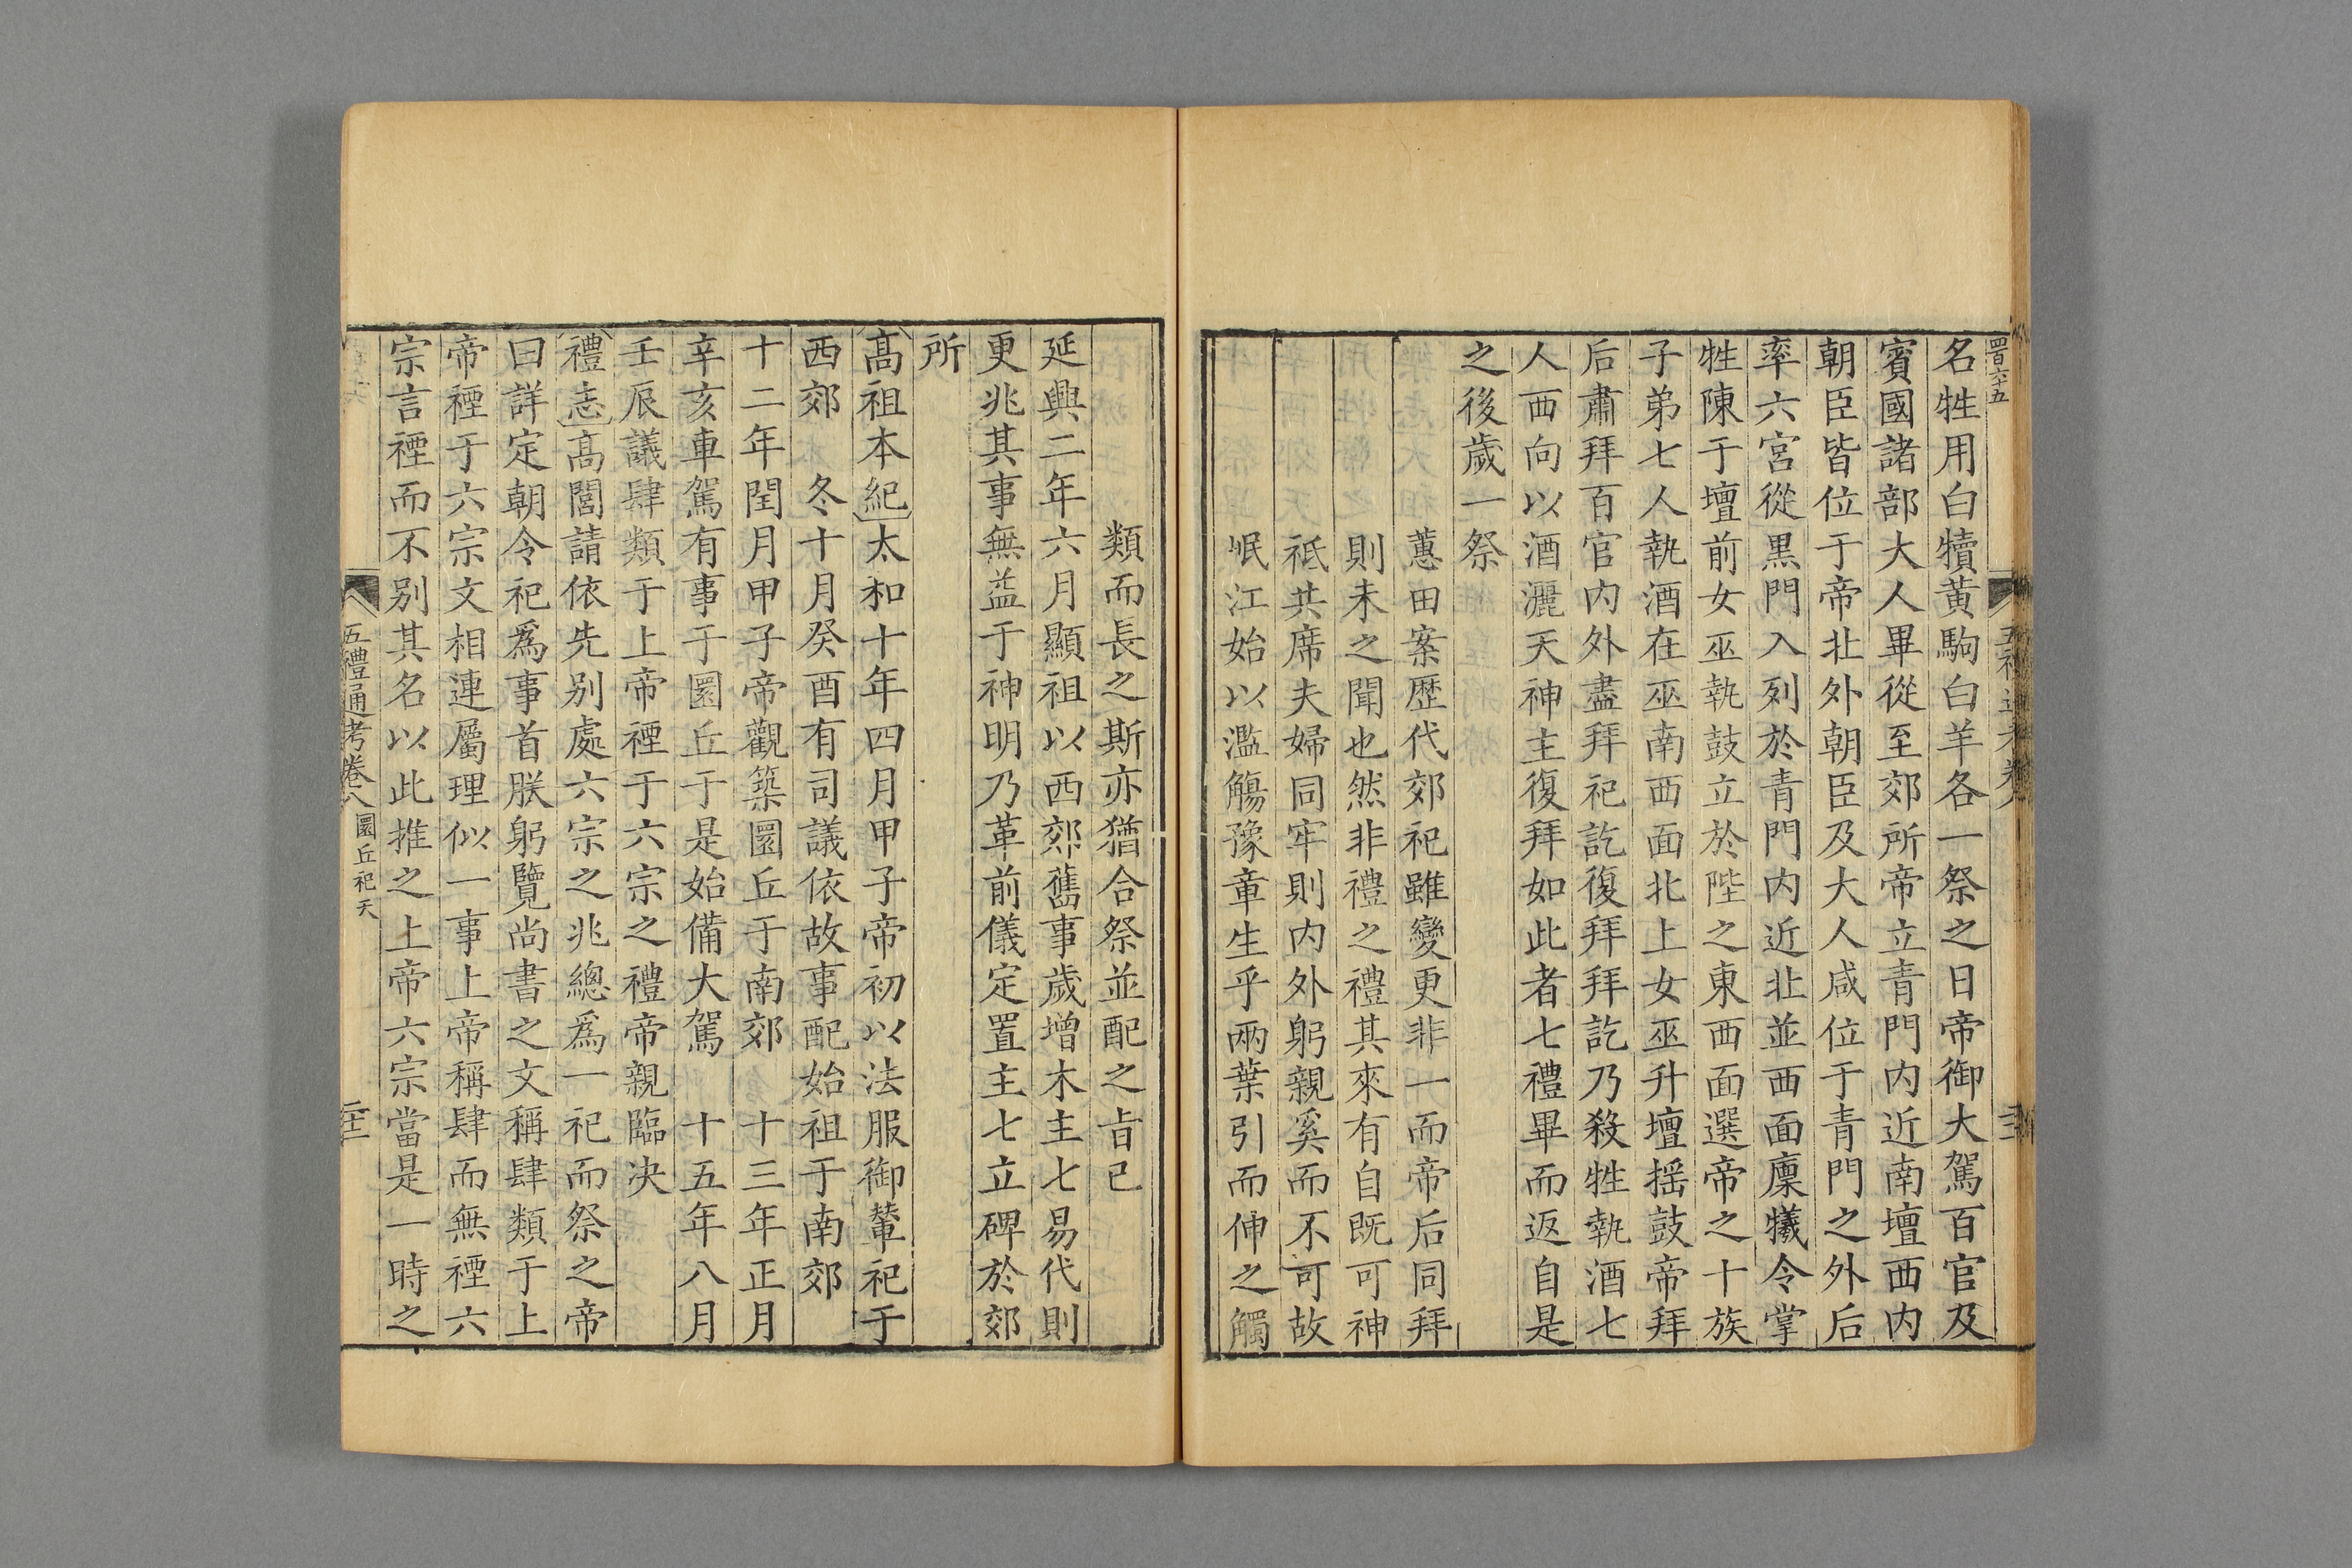 四百六十五
五禮通考卷八
名牲用白犢黄駒白羊各一祭之日帝御大駕百官及
賓國諸部大人畢從至郊所帝立青門内近南壇西内
朝臣皆位于帝北外朝臣及大人咸位于青門之外后
率六宮從黒門入列於青門内近北並西面廩犧令掌
牲陳于壇前女巫執鼓立於陛之東西面選帝之十族
子弟七人執酒在巫南西面北上女巫升壇揺鼓帝拜
后肅拜百官内外盡拜祀訖復拜拜訖乃殺牲執酒七
人西向以酒灑天神主復拜如此者七禮畢而返自是
之後歲一祭
蕙田案歴代郊祀雖變更非一而帝后同拜
則未之聞也然非禮之禮其來有自既可神
祗共席夫婦同牢則内外躬親奚而不可故
岷江始以濫觴豫章生乎兩葉引而伸之觸
類而長之斯亦猶合祭並配之㫖已
延興二年六月顯祖以西郊舊事歲增木主七易代則
更兆其事無益于神明乃革前儀定置主七立碑於郊
所
髙祖本紀太和十年四月甲子帝初以法服御輦祀于
西郊　冬十月癸酉有司議依故事配始祖于南郊
十二年閏月甲子帝觀築圜丘于南郊　十三年正月
辛亥車駕有事于圜丘于是始備大駕　十五年八月
壬辰議肆類于上帝禋于六宗之禮帝親臨決
禮志髙閭請依先别處六宗之兆總爲一祀而祭之帝
曰詳定朝令祀爲事首朕躬覽尚書之文稱肆類于上
帝禋于六宗文相連屬理似一事上帝稱肆而無禋六
宗言禋而不别其名以此推之上帝六宗當是一時之
五禮通考卷八 圜丘祀天